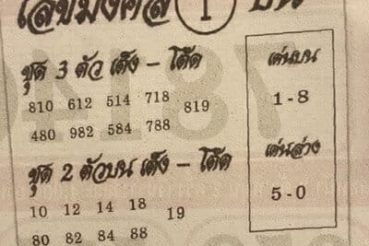 เลขมงคล 1 บน
ชุด 3 ตัว เต็ง - โต๊ด
810 612 514 718 819
480 982 584 788
ชุด 2 ตัวบน เต็ง - โต๊ด
10 12 14 18 19
80 82 84 88
เด่นบน
1-8
เด่นล่าง
5-0